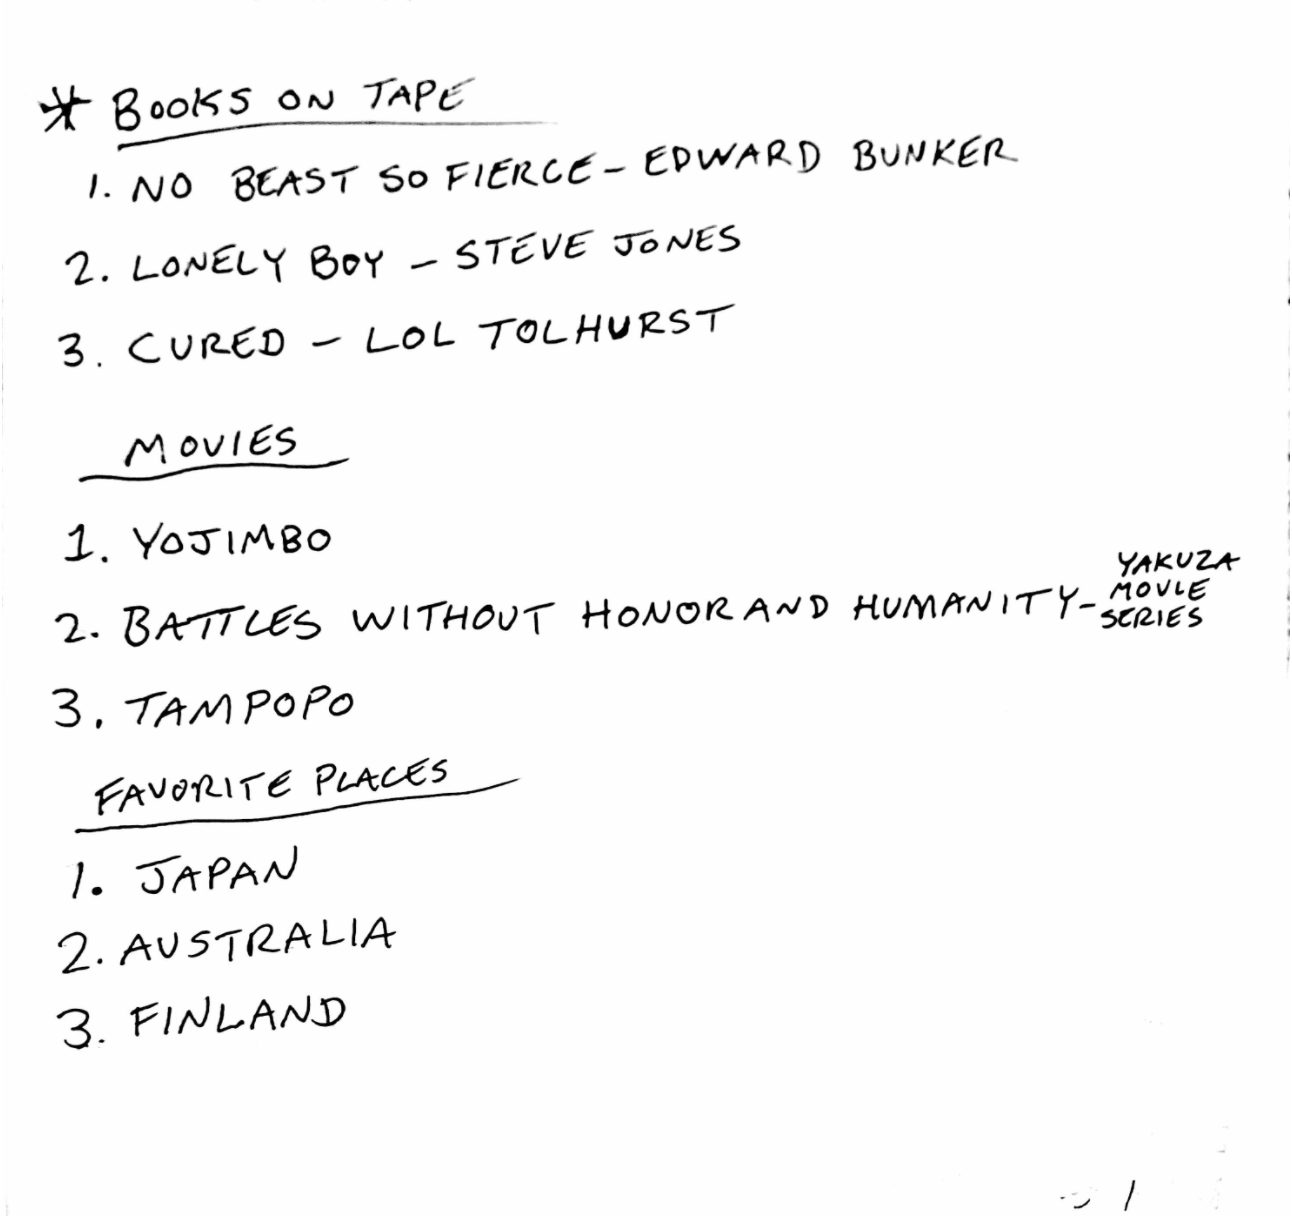 * BOOKS ON TAPE
1. NO BEAST SO FIERCE – EDWARD BUNKER
2. LONELY BOY – STEVE JONES
3. CURED – LOL TOLHURST
MOVIES
1. YOJIMBO
2. BATTLES WITHOUT HONOR AND HUMANITY – YAKUZA
MOVIE
SERIES
3. TAMPOPO
FAVORITE PLACES
1. JAPAN
2. AUSTRALIA
3. FINLAND